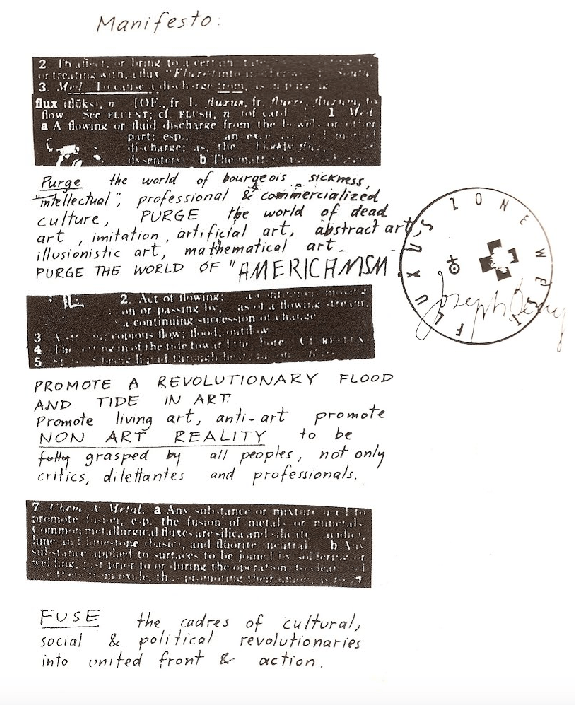 Manifesto:
2. To affect, or bring to a certain
or treating with, a flux.
3. Med. To cause a discharge from, as in
flux n. [OF., fr. L. fluxus, fr. fluere, fluxum, to
flow. See FLUENT; cf. FLUSH, n. (of cards).] 1. Med.
a A flowing or fluid discharge from the bowels or other
part; esp.,
discharge; as, the
b The matter
Purge the world of bourgeois sickness,
"intellectual", professional & commercialized
culture, PURGE the world of dead
art, imitation, artificial art, abstract art,
illusionistic art, mathematical art,
PURGE THE WORLD OF "AMERICANISM
2. Act of flowing:
on or passing by, as of a flowing stream;
a continuing succession of changes
3
4
5
PROMOTE A REVOLUTIONARY FLOOD
AND TIDE IN ART.
Promote living art, anti-art promote
NON ART REALITY to be
fully grasped by all peoples, not only
critics, dilettantes and professionals.
7. Chem. & Metal. a Any substance or mixture used to
promote fusion, esp. the fusion of metals or minerals.
Common metallurgical fluxes are silica and silicates (acidic),
lime and limestone (basic), and fluorite (neutral). b Any
substance applied to surfaces to be joined by soldering or
welding, just prior to or during the operation, to
promoting their union
FUSE the cadres of cultural,
social & political revolutionaries
into united front & action.
FLUXUS ZONE WEST
Joseph Beuys